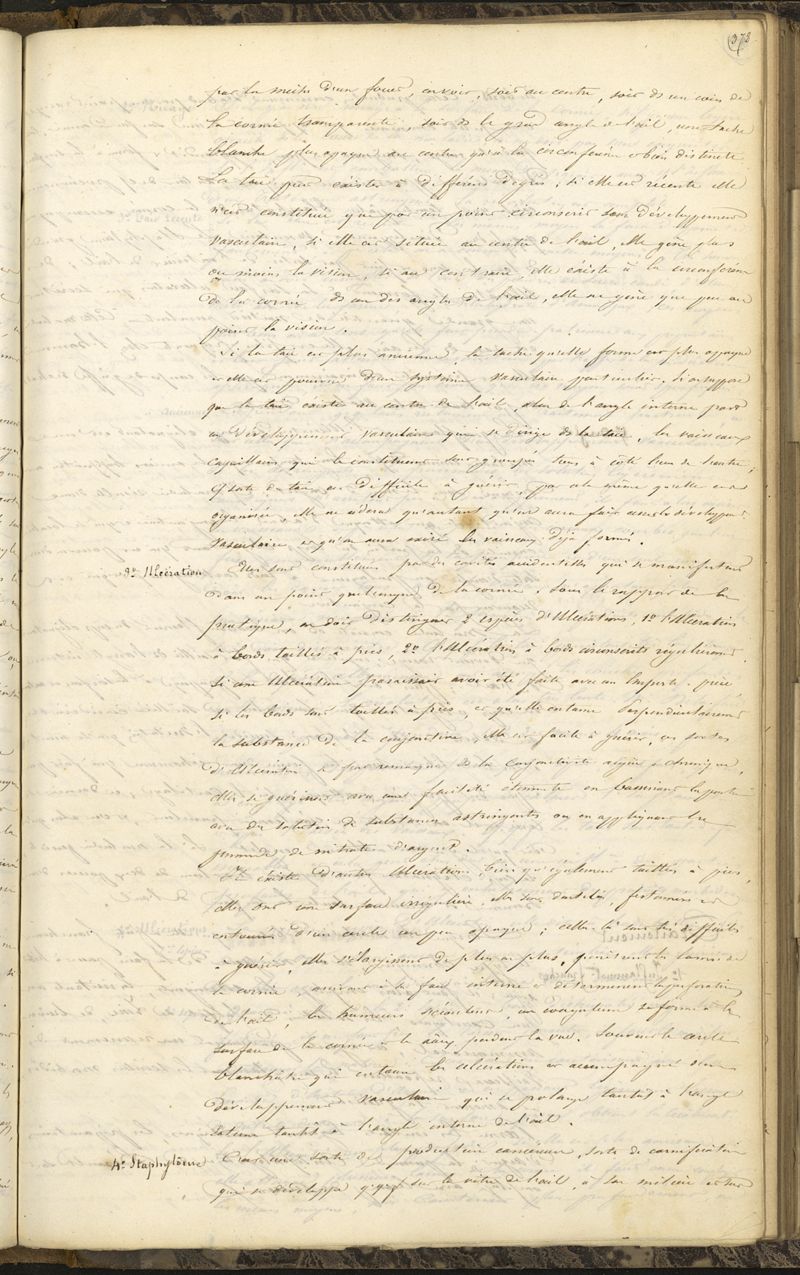 373
par la suite d'un foyer, on voit, soit au centre, soit ds un coin de
la cornée transparente, soit ds le grand angle de l'œil, une tache
blanche plus opaque au centre qu'à la circonférence et bien distincte.
La taie peut exister à différens degrés; si elle est récente elle
n'est constituée que par un point circonscrit sans développement
vasculaire, si elle est située au centre de l'œil, elle gêne plus
ou moins la vision, si au contraire elle existe à la circonférence
de la cornée ds un des angles de l'œil, elle ne gêne que peu ou
point la vision.
Si la taie est plus ancienne, la tache qu'elle forme est plus opaque
et elle est pourvue d'un système vasculaire particulier. Si on suppose
que la taie existe au centre de l'œil, alors de l'angle interne part
un développement vasculaire qui se dirige ds la taie, les vaisseaux
capillaires qui le constituent sont groupés les uns à côté les uns de l'autre,
sorte de taie est difficile à guérir, par cela même qu'elle est
organisée, elle ne cédera qu'autant qu'on aura fait cesser le développt
vasculaire et qu'on aura les vaisseaux déjà formés.
3º Ulcération Elles sont constituées par des cavités accidentelles qui se manifestent
dans un point quelconque de la cornée. Sous le rapport de la
pratique, on doit distinguer 2 espèces d'Ulcérations, 1º l'Ulcération
à bords taillés à pics, 2º l'Ulcération à bords circonscrits régulièrement.
Si une Ulcération paraissait avoir été faite avec un Emporte-pièce
si les bords sont taillés à pics, et qu'elle entame perpendiculairement
la substance de la conjonctive, elle est facile à guérir, ces sortes
d'Ulcération se font remarquer ds la conjonctivite aigüe et chronique,
elles se guérissent avec une facilité étonnante en bassinant la partie
avec des solutions de substances astringentes ou en appliquant la
pommade de nitrate d'argent.
Il existe d'autres Ulcérations, bien qu'également taillées à pics,
elles ont une surface irrégulière, elles sont dentelées, festonnées et
entourées d'un cercle un peu opaque; celles-là sont très difficiles
à guérir, elles s'élargissent de plus en plus, pénètrent les lames de
la cornée, arrivent à la face interne et déterminent la perforation
de l'œil, les humeurs s'écoulent, un coagulum se forme à la
surface de la cornée et le sujet perd la vue. Souvent le cercle
blanchâtre qui entoure les ulcérations est accompagné d'un
développement vasculaire qui se prolonge tantôt à l'angle
externe tantôt à l'angle interne de l'œil.
4º Staphylôme C'est une sorte de production cancéreuse, sorte de carnification
qui se développe sur la vitre de l'œil, à son milieu et sur